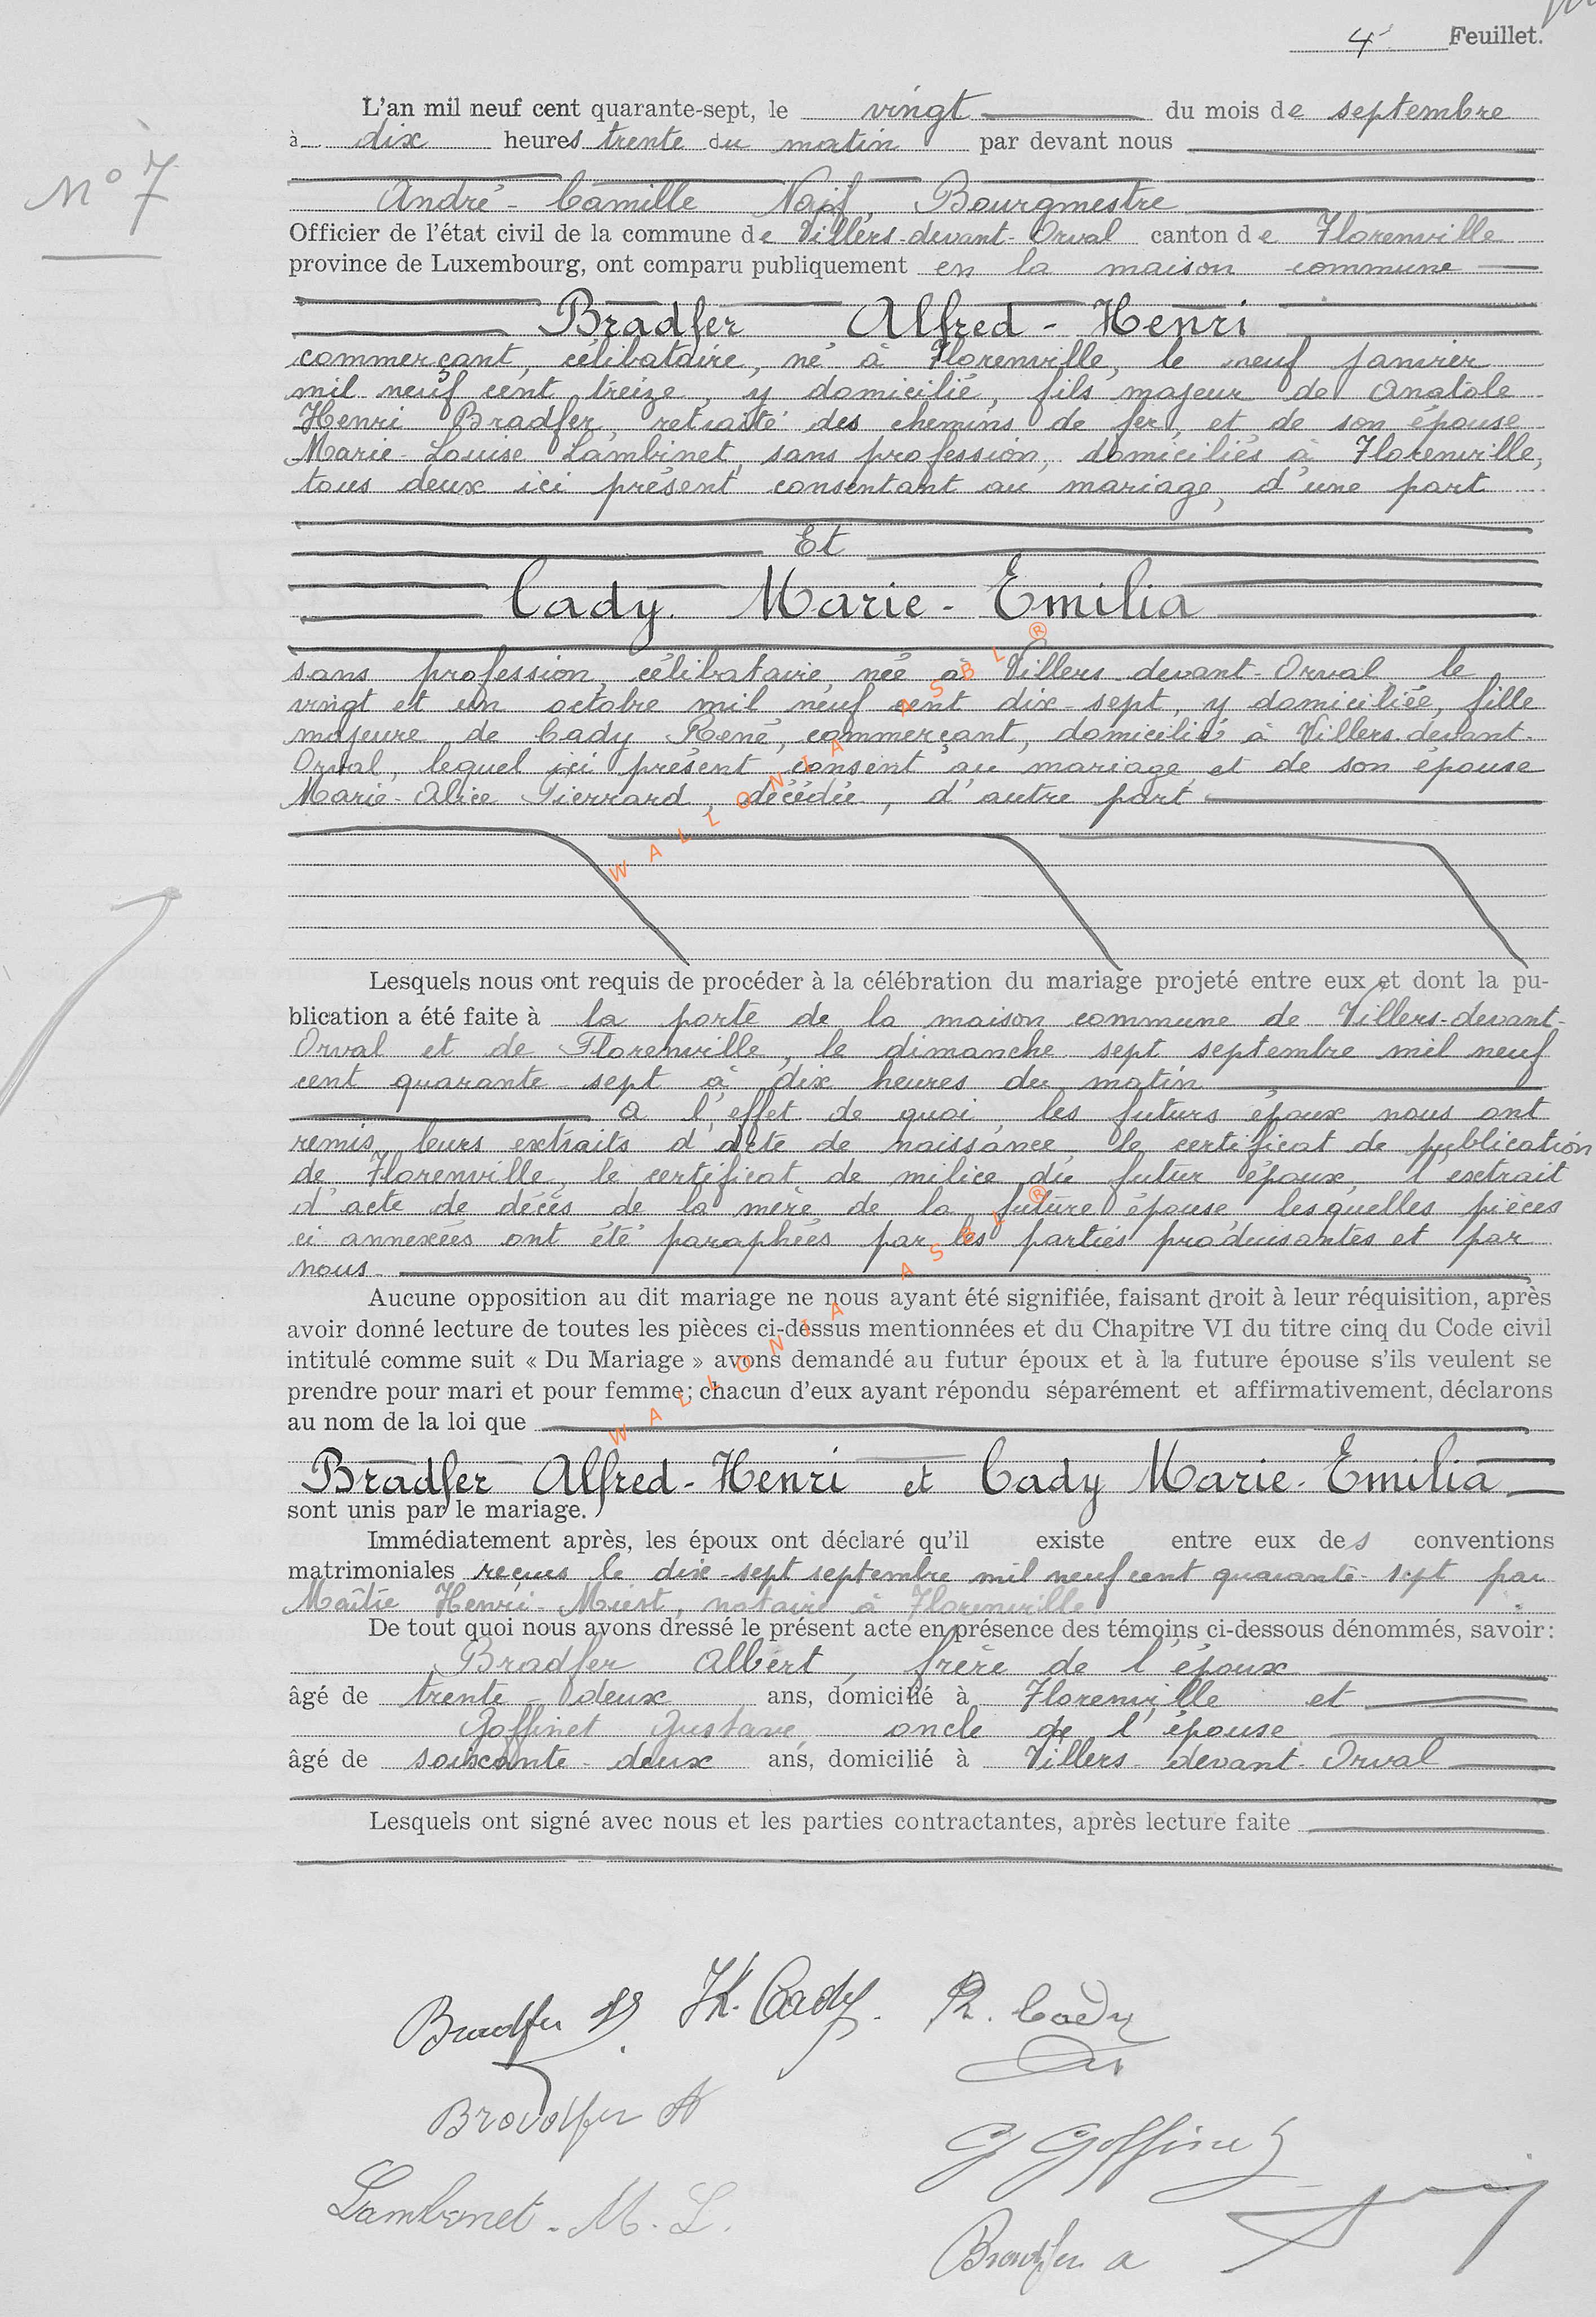 4 Feuillet.
L'an mil neuf cent quarante-sept, le vingt du mois de septembre
à dix heures trente du matin par devant nous
N° 7
André-Camille Naif, Bourgmestre
Officier de l'état civil de la commune de Villers-devant-Orval canton de Florenville
province de Luxembourg, ont comparu publiquement en la maison commune
Bradfer Alfred-Henri
commerçant, célibataire, né à Florenville, le neuf janvier
mil neuf cent treize, y domicilié, fils majeur de Anatole
Henri Bradfer, retraité des chemins de fer, et de son épouse
Marie-Louise Lambinet, sans profession, domiciliés à Florenville,
tous deux ici présent consentant au mariage, d'une part
Et
Cady Marie-Emilia
sans profession, célibataire, née à Villers-devant-Orval, le
vingt et un octobre mil neuf cent dix-sept, y domiciliée, fille
majeure de Cady René, commerçant, domicilié à Villers-devant-
Orval, lequel ici présent consent au mariage, et de son épouse
Marie-Alice Pierrard, décédée, d'autre part
WALLONIA ASBL ®
Lesquels nous ont requis de procéder à la célébration du mariage projeté entre eux et dont la pu-
blication a été faite à la porte de la maison commune de Villers-devant-
Orval et de Florenville, le dimanche sept septembre mil neuf
cent quarante-sept à dix heures du matin
A l'effet de quoi, les futurs époux nous ont
remis leurs extraits d'acte de naissance, le certificat de publication
de Florenville, le certificat de milice du futur époux, l'extrait
d'acte de décès de la mère de la future épouse, lesquelles pièces
ci-annexées ont été paraphées par les parties produisantes et par
nous.
Aucune opposition au dit mariage ne nous ayant été signifiée, faisant droit à leur réquisition, après
avoir donné lecture de toutes les pièces ci-dessus mentionnées et du Chapitre VI du titre cinq du Code civil
intitulé comme suit « Du Mariage » avons demandé au futur époux et à la future épouse s'ils veulent se
prendre pour mari et pour femme; chacun d'eux ayant répondu séparément et affirmativement, déclarons
au nom de la loi que
WALLONIA ASBL ®
Bradfer Alfred-Henri et Cady Marie-Emilia
sont unis par le mariage.
Immédiatement après, les époux ont déclaré qu'il existe entre eux des conventions
matrimoniales reçues le dix-sept septembre mil neuf cent quarante-sept par
Maître Henri Miest, notaire à Florenville.
De tout quoi nous avons dressé le présent acte en présence des témoins ci-dessous dénommés, savoir:
Bradfer Albert, frère de l'époux
âgé de trente-deux ans, domicilié à Florenville et
Goffinet Gustave, oncle de l'épouse
âgé de soixante-deux ans, domicilié à Villers-devant-Orval
Lesquels ont signé avec nous et les parties contractantes, après lecture faite
Bradfer M. Cady. R. Cady
Bradfer A
G Goffinet
Lambinet. M. L.
Bradfer a